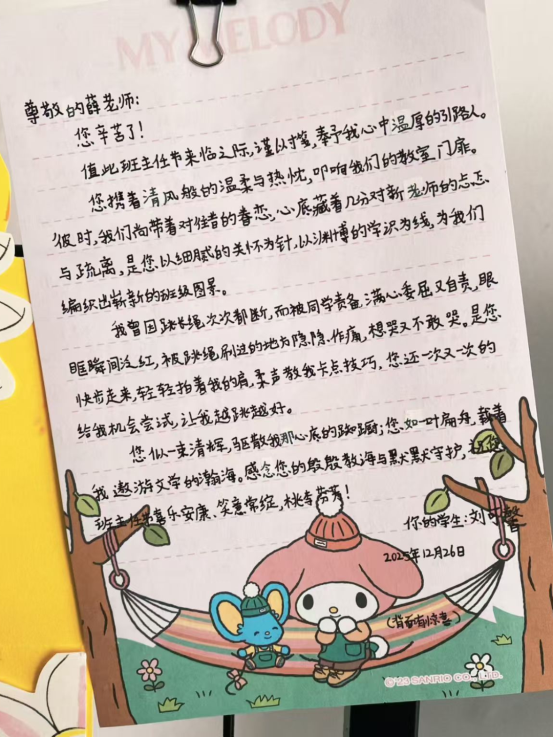 MY MELODY
尊敬的薛老师:
您辛苦了!
值此班主任节来临之际,谨以寸笺,奉予我心中温厚的引路人。
您携着清风般的温柔与热忱,叩响我们的教室门扉。
彼时,我们尚带着对往昔的眷恋,心底藏着几分对新老师的忐忑
与疏离,是您以细腻的关怀为针,以渊博的学识为线,为我们
编织出崭新的班级图景。
我曾因跳长绳次次都断,而被同学责备,满心委屈又自责,眼
眶瞬间泛红,被跳绳刷过的地方隐隐作痛,想哭又不敢哭。是您
快步走来,轻轻拍着我的肩,柔声教我卡点技巧,您还一次又一次的
给我机会尝试,让我越跳越好。
您似一束清辉,驱散我那心底的踟蹰;您如一叶扁舟,载着
我遨游文学的瀚海。感念您的殷殷教诲与默默守护,祝您
班主任节喜乐安康、笑意常绽,桃李芬芳!
你的学生:刘馨
2025年12月26日
(背面有惊喜)
©'23 SANRIO CO., LTD.